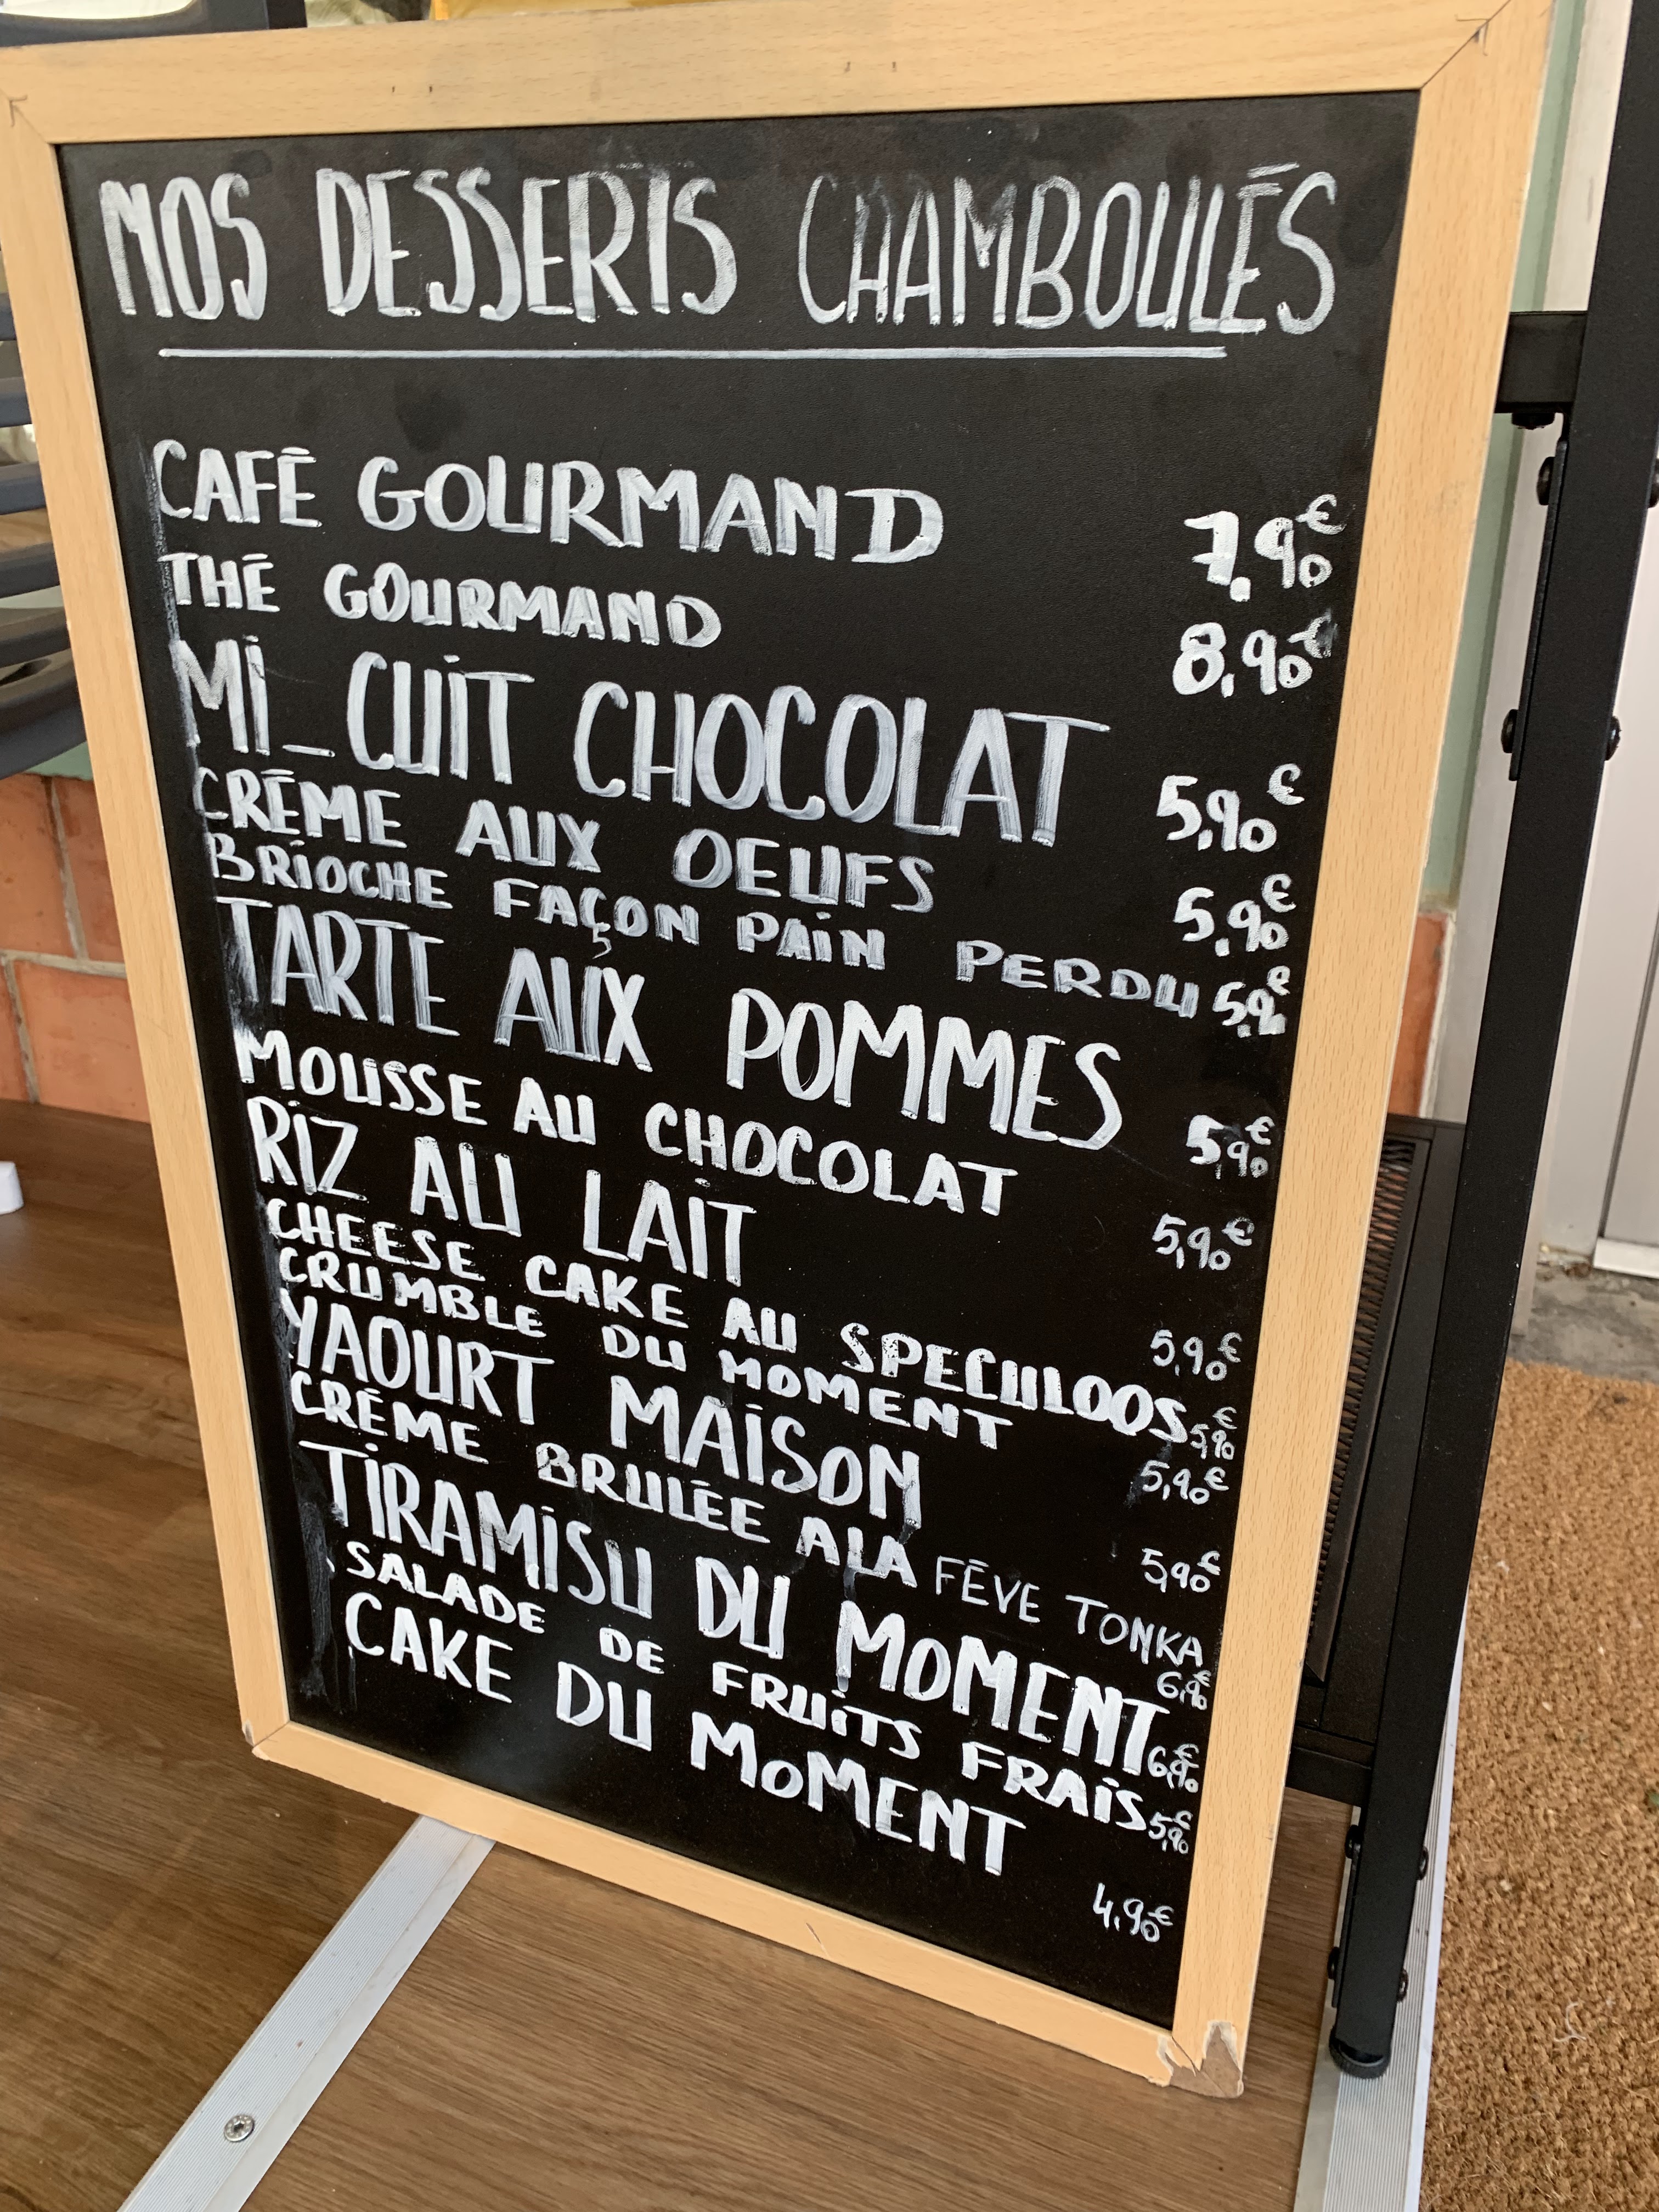 NOS DESSERTS CHAMBOULÉS
CAFÉ GOURMAND 7.90€
THÉ GOURMAND 8,90€
Mi_CUiT CHOCOLAT 5,90€
CRÉME AUX OEUFS 5.90€
BRiOCHE FAÇON PAiN PERDU 5,90€
TARTE AUX POMMES 5,90€
MOUSSE AU CHOCOLAT 5,90€
RiZ AU LAiT 5,90€
CHEESE CAKE AU SPECULOOS 5,90€
CRUMBLE DU MOMENT 5,90€
YAOURT MAiSON 5,90€
CRÉME BRULÉE A LA FÉVE TONKA 6,90€
TiRAMiSU DU MOMENT 6,90€
SALADE DE FRUiTS FRAiS 5,90€
CAKE DU MOMENT 4.90€